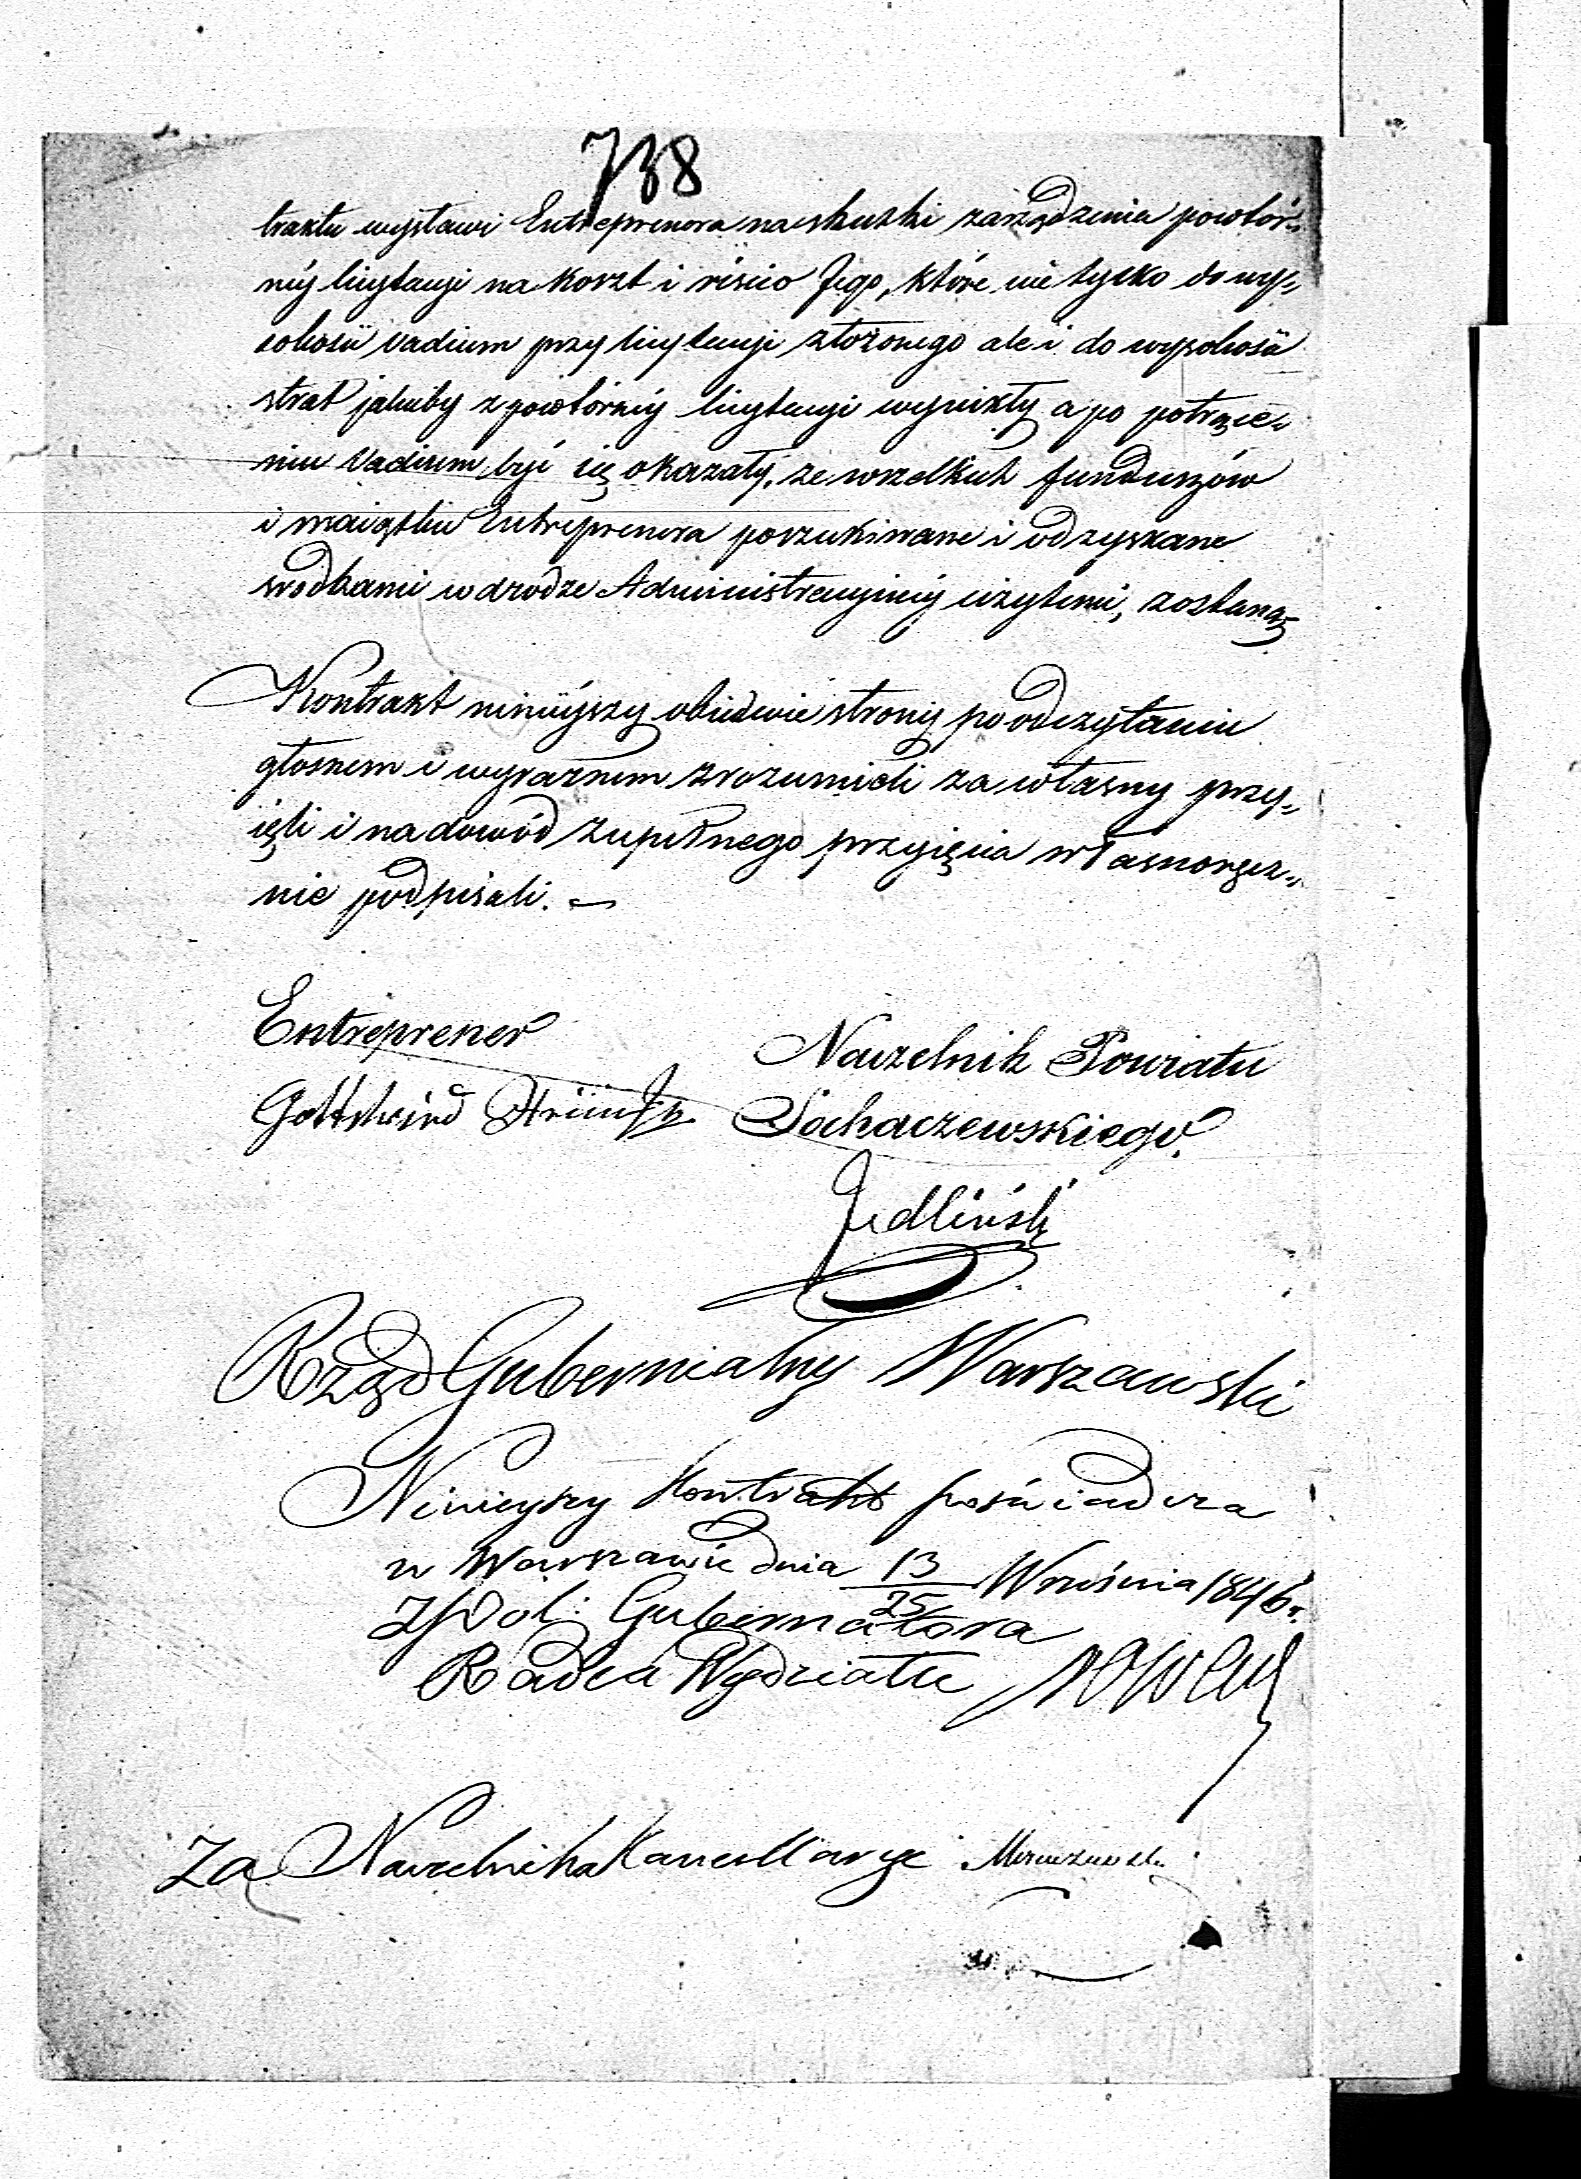 738
traktu wystawi Entreprenora na skutki zarządzenia powtór-
néj licytacyi na koszt i risico Jego, które nie tylko do wy-
sokości vadium przy licytacyi złożonego ale i do wysokości
strat jakieby z powtórnéj licytacyi wynikły a po potrące-
niu Vadium być się okazały, ze wszelkich funduszów
i maiątku Entreprenora poszukiwane i odzyskane
srodkami w drodze Administracyjnéj użytemi, zostaną
Kontrakt niniéjszy obiedwie strony po odczytaniu
głosnem i wyraznem zrozumieli za własny przy-
ięli i na dowód zupełnego przyięcia własnoręcz-
nie podpisali. —
Entreprener
Naczelnik Powiatu
Sochaczewskiego
Jedliński
Rząd Gubernialny Warszawski
Ninieyszy Kontrakt poświadcza
w Warszawie dnia 13/25 Września 1846 r.
Gubernatora
Radca Wydziału
Za Naczelnika Kancellaryi